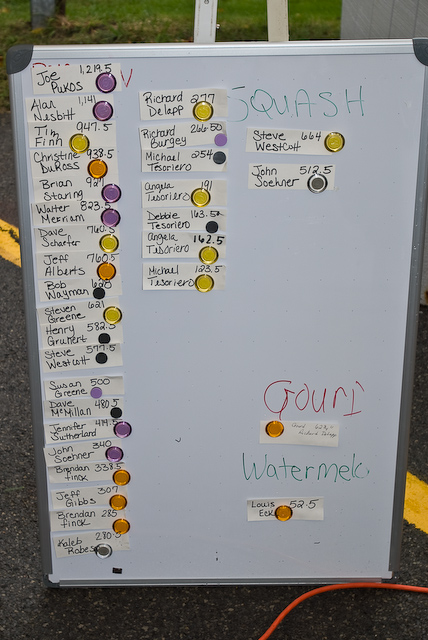 Joe 1,219.5
Pukos
V
Alan 1,141
Nesbitt
Tim 947.5
Finn
Christine 938.5
DuRoss
Brian
Staring
Walter 823.5
Merriam
Dave 760.5
Schaefer
Jeff 700.5
Alberts
Bob
Wayman
Steven 621
Greene
Henry 582.5
Grunert
Steve 577.5
Westcott
Susan 500
Greene
Dave 480.5
McMillan
Jennifer
Sutherland
John 340
Soehner
Brendan 338.5
finck
Jeff 307
Gibbs
Brendan 285
finck
Kaleb 280.5
Robes
Richard 277
Delapp
Richard 266.50
Burgey
Michael 254
Tesoriero
Angela 191
Tesoriero
Debbie 163.5
Tesoriero
Angela 162.5
Tesoriero
Michael 123.5
Tesoriero
SQUASH
Steve 664
Westcott
John 512.5
Soehner
Gourd
Watermelo
Louis 52.5
Eck